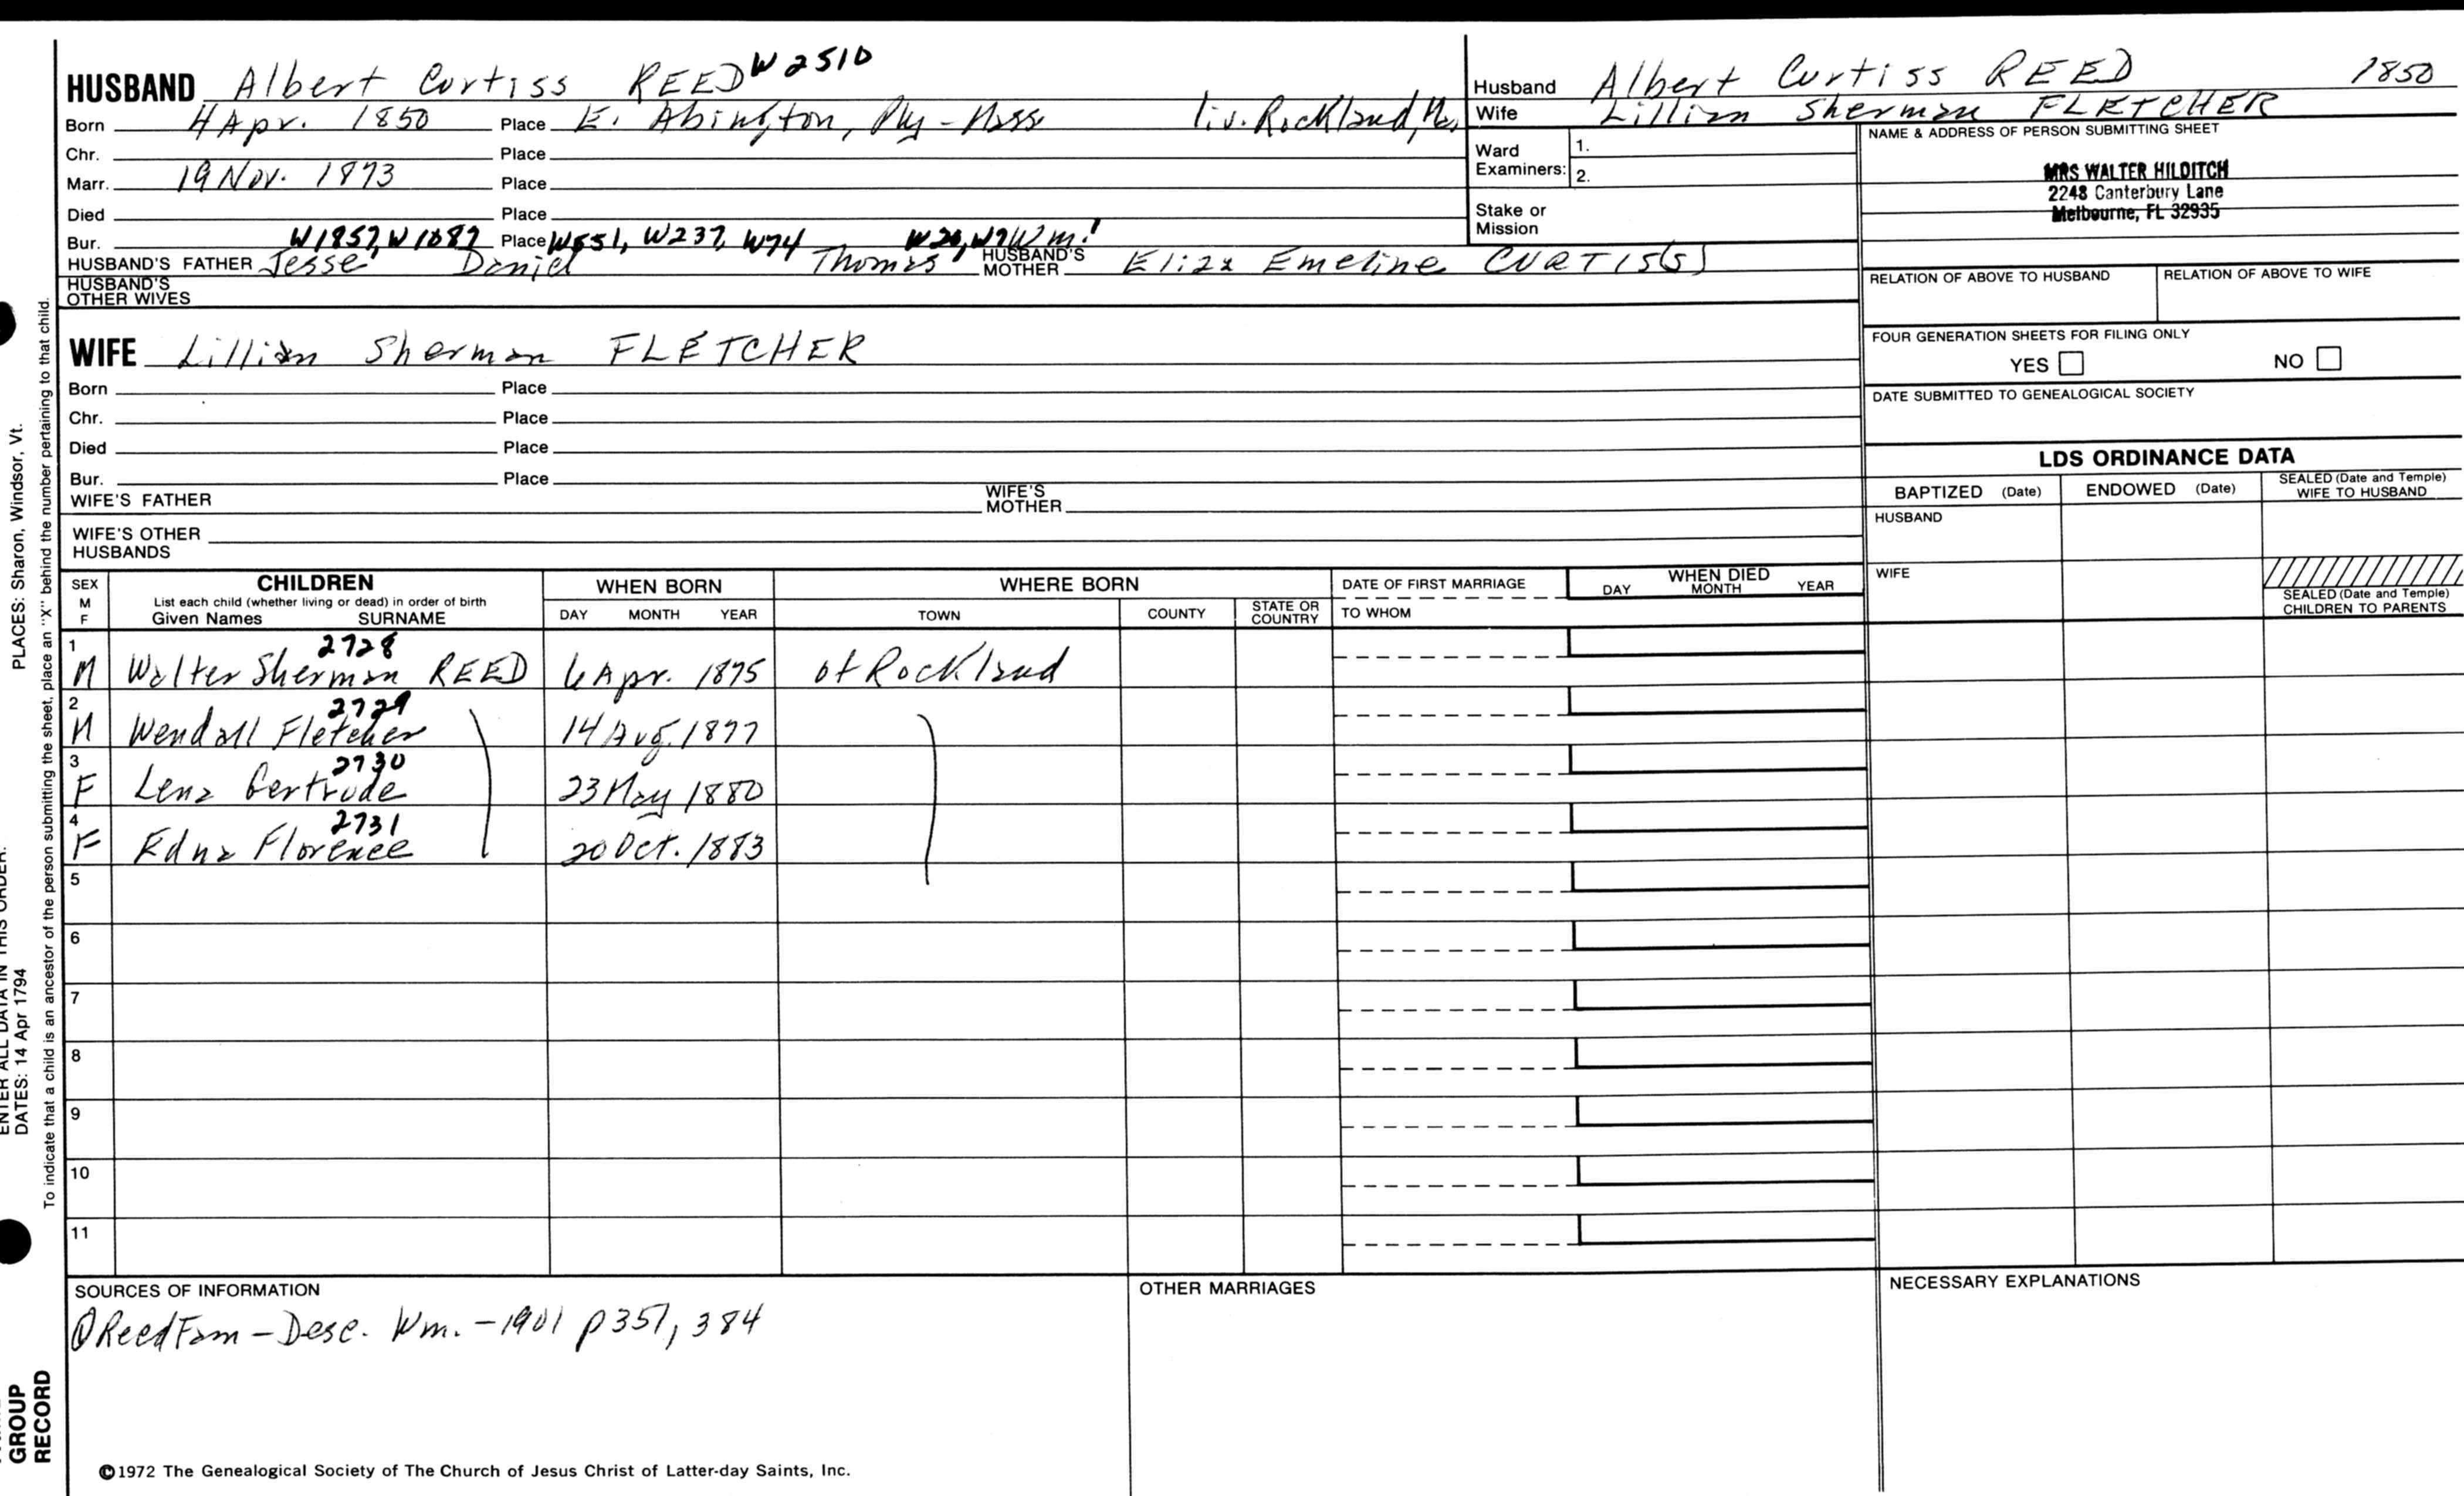 HUSBAND Albert Curtiss REED W2510
Born 4 Apr. 1850 Place E. Abington, Ply - Mass liv. Rockland,
Chr. Place
Marr. 19 Nov. 1873 Place
Died Place
Bur. W1857, W1087 Place W551, W237, W74 W20, W7 Wm.
HUSBAND'S FATHER Jesse Daniel Thomas HUSBAND'S MOTHER Eliza Emeline CURTIS(S)
HUSBAND'S OTHER WIVES
Husband Albert Curtiss REED 1850
Wife Lillian Sherman FLETCHER
Ward Examiners: 1.
2.
Stake or Mission
NAME & ADDRESS OF PERSON SUBMITTING SHEET
MRS WALTER HILDITCH
2248 Canterbury Lane
Melbourne, FL 32935
RELATION OF ABOVE TO HUSBAND RELATION OF ABOVE TO WIFE
FOUR GENERATION SHEETS FOR FILING ONLY
YES NO
DATE SUBMITTED TO GENEALOGICAL SOCIETY
WIFE Lillian Sherman FLETCHER
Born Place
Chr. Place
Died Place
Bur. Place
WIFE'S FATHER WIFE'S MOTHER
WIFE'S OTHER HUSBANDS
LDS ORDINANCE DATA
BAPTIZED (Date) ENDOWED (Date) SEALED (Date and Temple) WIFE TO HUSBAND
HUSBAND
WIFE
SEALED (Date and Temple) CHILDREN TO PARENTS
SEX M F
CHILDREN
List each child (whether living or dead) in order of birth
Given Names SURNAME
WHEN BORN
DAY MONTH YEAR
WHERE BORN
TOWN COUNTY STATE OR COUNTRY
DATE OF FIRST MARRIAGE
TO WHOM
WHEN DIED
DAY MONTH YEAR
1 2728
M Walter Sherman REED 6 Apr. 1875 of Rockland
2 2729
M Wendall Fletcher 14 Aug. 1877
3 2730
F Lena Gertrude 23 May 1880
4 2731
F Edna Florence 20 Oct. 1883
5
6
7
8
9
10
11
SOURCES OF INFORMATION
Reed Fam - Desc. Wm. - 1901 p 351, 384
OTHER MARRIAGES
NECESSARY EXPLANATIONS
©1972 The Genealogical Society of The Church of Jesus Christ of Latter-day Saints, Inc.
PLACES: Sharon, Windsor, Vt.
To indicate that a child is an ancestor of the person submitting the sheet, place an "X" behind the number pertaining to that child.
ENTER ALL DATA IN THIS ORDER:
DATES: 14 Apr 1794
GROUP
RECORD